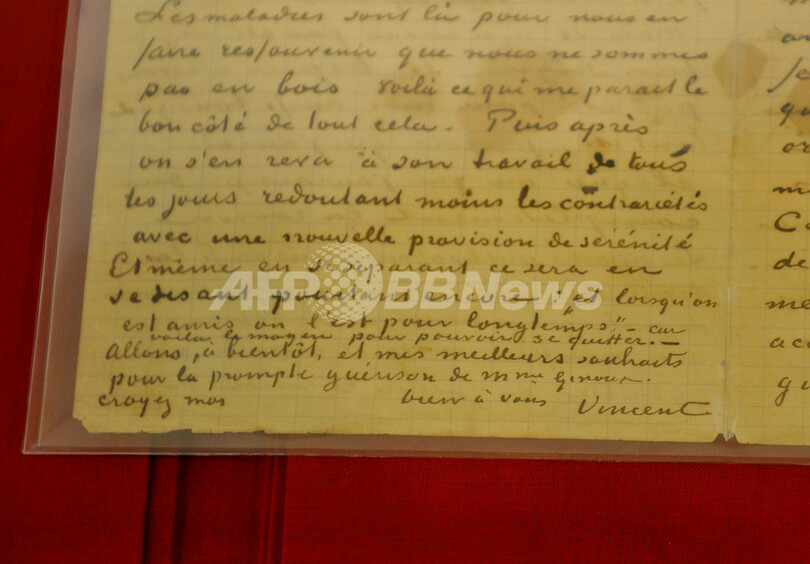 Les maladies sont là pour nous en
faire ressouvenir que nous ne sommes
pas en bois voilà ce qui me parait le
bon côté de tout cela. Puis après
on s'en reva à son travail de tous
les jours redoutant moins les contrariétés
avec une nouvelle provision de sérénité
Et même en se séparant ce sera en
se disant pourtant encore : "et lorsqu'on
est amis on l'est pour longtemps" – car
voilà le moyen pour pouvoir se quitter. –
Allons, à bientôt, et mes meilleurs souhaits
pour la prompte guérison de Mme Ginoux.
croyez moi
bien à vous Vincent
AFP BBNews
m
de
me